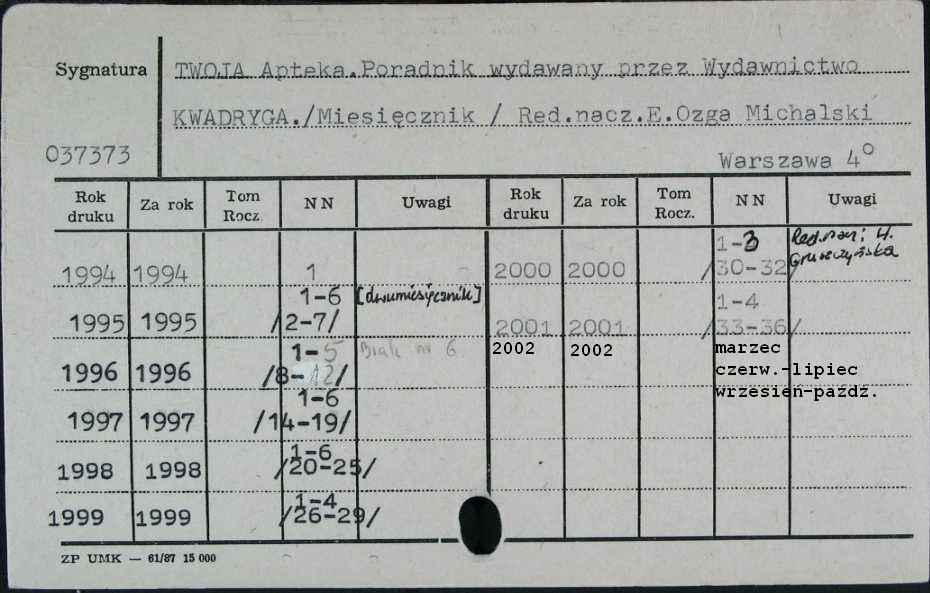 Sygnatura
TWOJA Apteka.Poradnik wydawany przez Wydawnictwo
KWADRYGA./Miesięcznik / Red.nacz.E.Ozga Michalski
037373
Warszawa 4°
Rok druku Za rok Tom Rocz. NN Uwagi Rok druku Za rok Tom Rocz. NN Uwagi
1994 1994 1
2000 2000 1-3 /30-32/ Red.nacz: H. Gruszczyńska
1995 1995 1-6 /2-7/ [dwumiesięcznik]
2001 2001 1-4 /33-36/
1996 1996 1-5 /8-12/ Brak nr 6
2002 2002 marzec
czerw.-lipiec
wrzesień-paźdź.
1997 1997 1-6 /14-19/
1998 1998 1-6 /20-25/
1999 1999 1-4 /26-29/
ZP UMK — 61/87 15 000